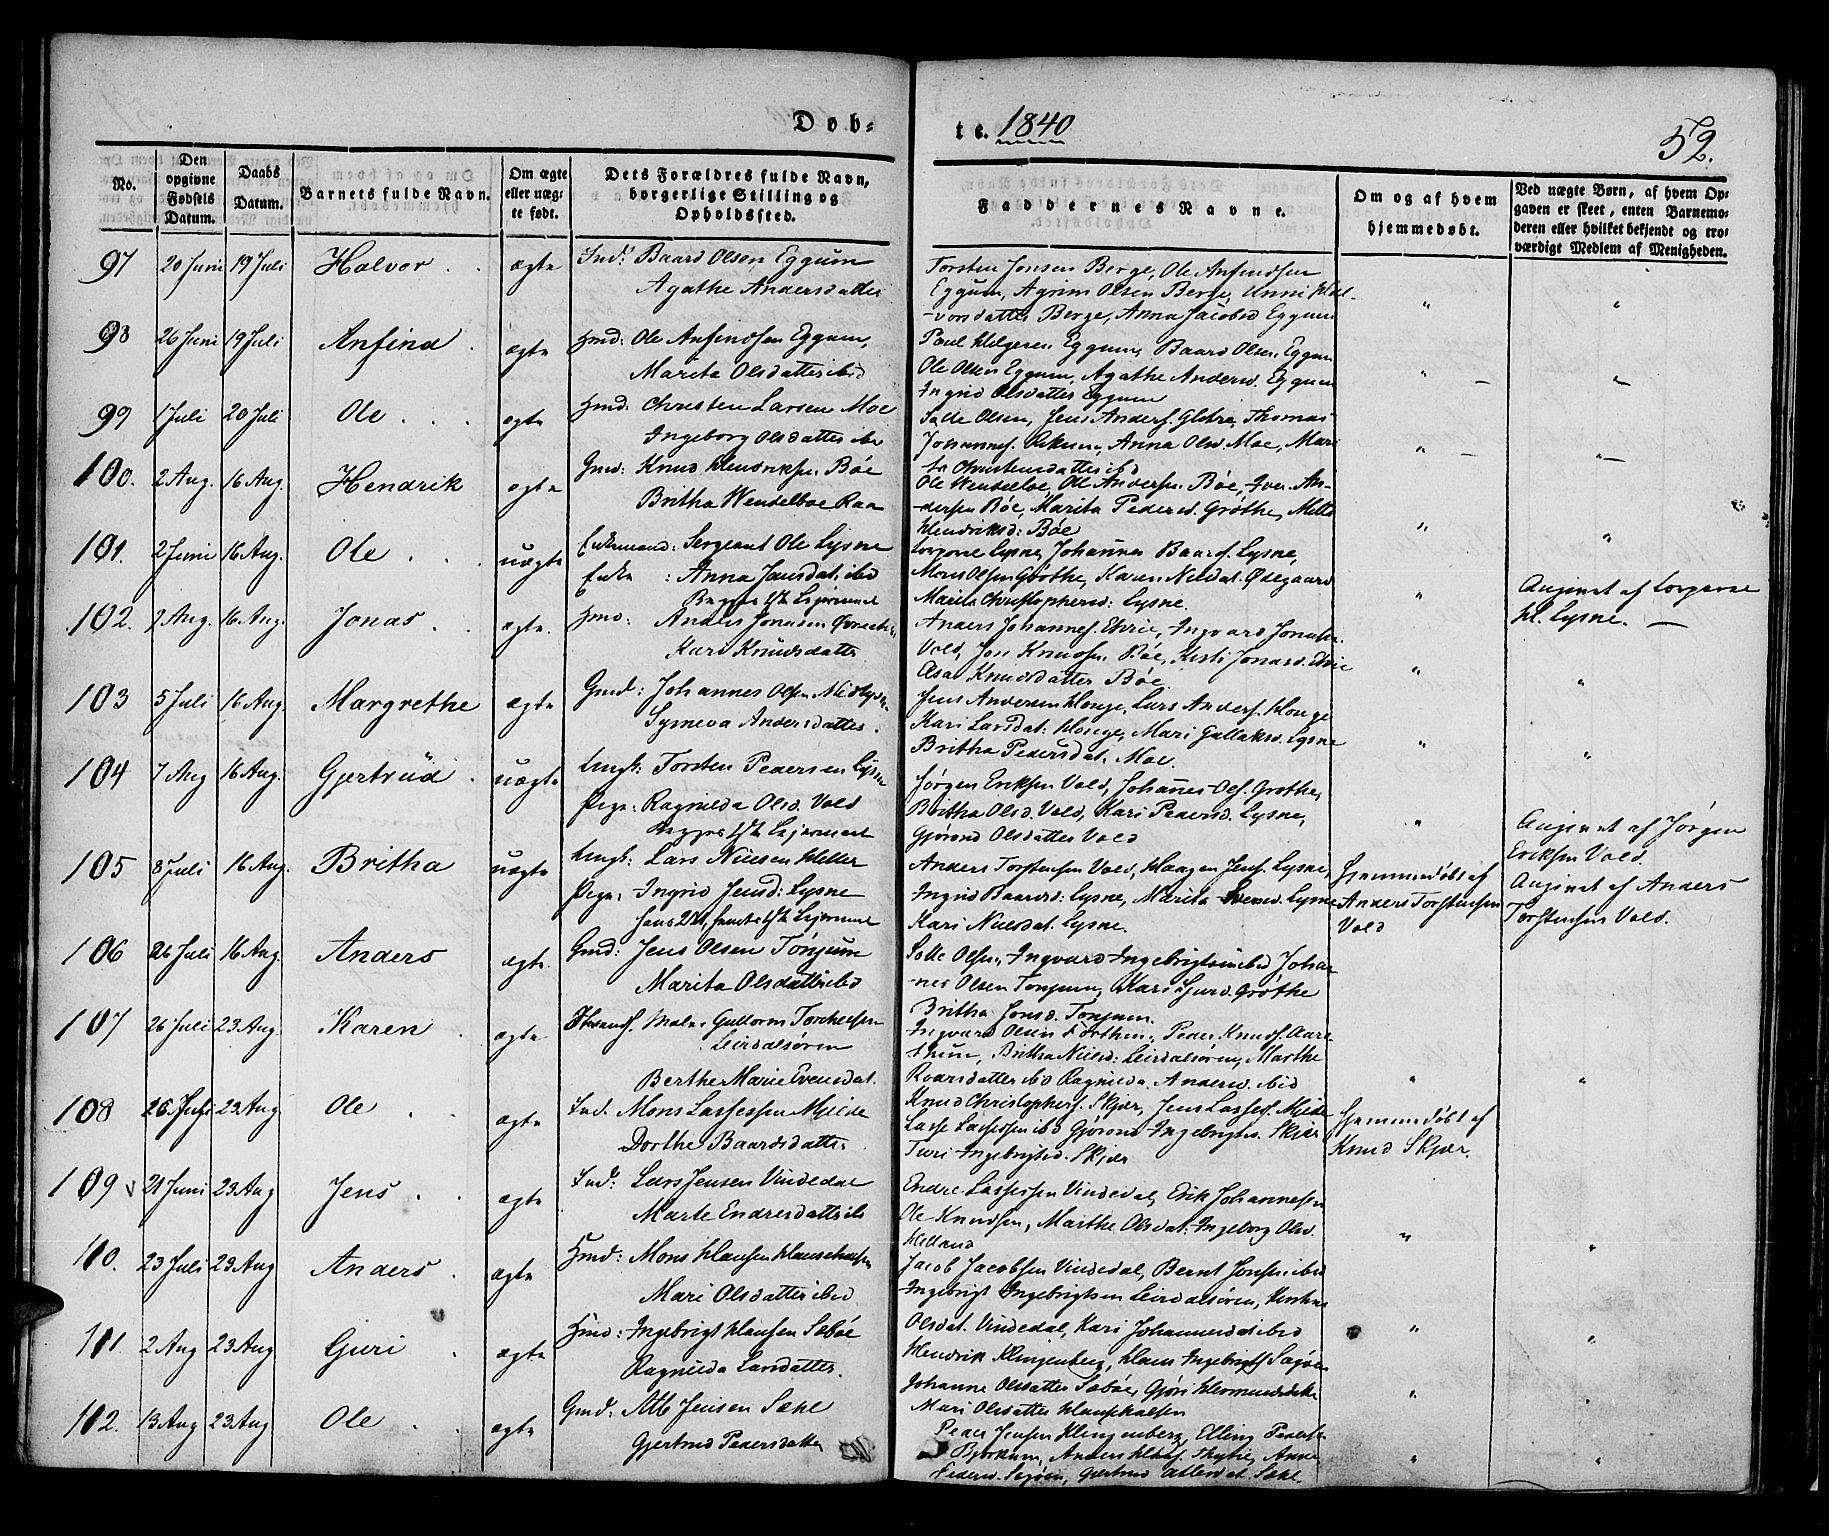 Døb-
te. 1840
52.
No.
Den opgivne Fødsels Datum.
Daabs Datum.
Barnets fulde Navn.
Om ægte eller uægte født.
Dets Forældres fulde Navn, borgerlige Stilling og Opholdsted.
Faddernes Navne.
Om og af hvem hjemmedøbt.
Ved uægte Børn, af hvem Opgaven er skeet, enten Barnemoderen eller hvilket bekjendt og troværdigt Medlem af Menigheden.
97 20 Juni 19 Juli Halvor ægte Ind: Baard Olsen Eggum
Agathe Andersdatter
Torsten Jonsen Berge, Ole Anfindsen
Eggum, Agrim Olsen Berge, Unni Hal-
vorsdatter Berge, Anna Jacobsd Eggum
98 26 Juni 19 Juli Anfind ægte Hmd: Ole Anfindsen Eggum,
Marita Olsdatter ibid
Paul Helgesen Eggum, Baard Olsen Eggum
Ole Olsen Eggum, Agathe Andersd. Eggum
Ingrid Olsdatter Eggum
99 1 Juli 20 Juli Ole ægte Hmd: Christen Larsen Moe
Ingeborg Olsdatter ibd
Olsen, Jens Anders. Thomas
Johannes. Anna Olsd. Moe, Mari
ta Christensdatter ibd
100. 2 Aug. 16 Aug. Hendrik ægte Gmd: Knud Hendriksen Bøe
Britha Wendelboe Raa
Ole Wendelboe, Ole Andersen Bøe, Iver An-
dersen Bøe, Marita Pedersd. Grøthe,
Hendriksd: Bøe
101. 2 Juni 16 Aug. Ole uægte Enkemand: Sergeant Ole Lysne
Enke: Anna Jensdat. ibid
Begges 1ste Leiermaal
Lysne, Johannes Baards. Lysne,
Mons Olsen Grøthe, Karen Nilsdat. Øsegaard
Marita Christophersd: Lysne.
Angivet af
Kl. Lysne. —
102. 2 Aug. 16 Aug. Jonas ægte. Hmd: Anders Jonasen
Kari Knudsdatter
Anders Johannes. Ehrie, Ingvard Jonasen
Vold, Jon Knudsen Bøe, Kisti Jonasd. Ehrie
Asa Knudsdatter Bøe
103 5 Juli 16 Aug. Margrethe ægte Gmd: Johannes Olsen
Synneva Andersdatter.
Jens Andersen Houge, Lars Anders. Houge
Kari Larsdat: Houge, Mari Gullaksd. Lysne
Britha Pedersdat. Moe.
104 7 Aug 16 Aug. Gjertrud uægte Ungk: Torsten Pedersen Lysne
Pige: Ragnilda Olsd. Vold
Begges 1ste Leiermaal
Jørgen Eriksen Vold, Johannes Ols. Grøthe,
Britha Olsd. Vold, Kari Pedersd. Lysne,
Gjørond Olsdatter Vold
Angivet af Jørgen
Eriksen Vold.
105 8 Juli 16 Aug. Britha uægte Ungk: Lars Nilsen Hetler
Pige: Ingrid Jensd: Lysne
hans 2det, hendes 1ste Leiermaal
Anders Torstensen Vold, Haagen Jens. Lysne,
Ingrid Baardsd: Lysne, Marita Lysne
Kari Nilsdat. Lysne.
Hjemmedøbt af
Anders Torstensen
Vold
Angivet af Anders
Torstensen Vold.
106 26 Juli 16 Aug. Anders ægte Gmd: Jens Olsen Tønjum
Marita Olsdatter ibid
Olsen, Ingvard Ingebrigtsen ibid Johan-
nes Olsen Tønjum, Kari Sjurd. Grøthe
Britha Jonsd. Tønjum.
107 26 Juli 23 Aug. Karen ægte Maler Guttorm
Leirdalsøren
Berthe Marie Evensdat.
Ingvard Olsen Peder Knuds. Aare-
thun, Britha Nilsd: Leirdalsøren, Marthe
Roarsdatter ibid Ragnilda Andersd. ibid
108 26 Juli 23 Aug Ole ægte Ind. Mons Lassessen Mjelde
Dorthe Baardsdatter
Knud Christophers. Skjær, Jens Lasses. Mjelde
Lasse Lassessen ibid Gjørond Ingebrigtsd. Skjær
Turi Ingebrigtsd. Skjær
Hjemmedøbt af
Knud Skjær.
109 21 Juni 23 Aug Jens ægte Ind: Lars Jensen Vindedal
Marte Endresdatter ib
Endre Lassessen Vindedal, Erik Johannesen
Ole Knudsen, Marthe Olsdat: Ingeborg Olsd.
Helland
110. 23 Juli 23 Aug Anders ægte Hmd: Mons Hansen
Mari Olsdatter ibid
Jacob Jacobsen Vindedal, Bernt Jonsen ibid
Ingebrigt Ingebrigtsen Leirdalsøren,
Olsdat. Vindedal, Kari Johannesd ibid
111 2 Aug 23 Aug Guri ægte Hmd: Ingebrigt Hansen Sæbøe
Ragnilda Larsdatter.
Hendrik Klingenberg, Hans Ingebrigts
Johanne Olsdatter Sæbøe, Gjøri
Mari Olsdatter
112. 13 Aug 23 Aug Ole ægte Gmd: Atle Jensen Sæhl
Gjertrud Pedersdatter
Peder Jensen Klingenberg, Elling Peders.
Bjørkum, Anders Anna
Pedersd. Gjertrud Atlesdat. Sæhl